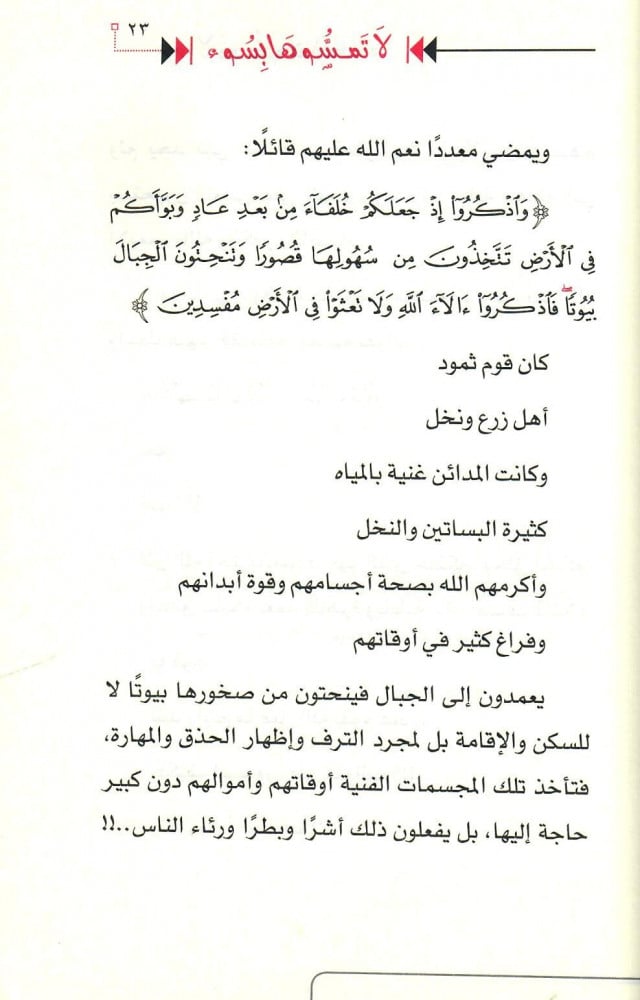 ٢٣
لَا تَمَسُّوهَا بِسُوءٍ
ويمضي معددًا نعم الله عليهم قائلًا:
﴿وَٱذْكُرُوٓا۟ إِذْ جَعَلَكُمْ خُلَفَآءَ مِنۢ بَعْدِ عَادٍ وَبَوَّأَكُمْ
فِى ٱلْأَرْضِ تَتَّخِذُونَ مِن سُهُولِهَا قُصُورًا وَتَنْحِتُونَ ٱلْجِبَالَ
بُيُوتًا ۖ فَٱذْكُرُوٓا۟ ءَالَآءَ ٱللَّهِ وَلَا تَعْثَوْا۟ فِى ٱلْأَرْضِ مُفْسِدِينَ﴾
كان قوم ثمود
أهل زرع ونخل
وكانت المدائن غنية بالمياه
كثيرة البساتين والنخل
وأكرمهم الله بصحة أجسامهم وقوة أبدانهم
وفراغ كثير في أوقاتهم
يعمدون إلى الجبال فينحتون من صخورها بيوتًا لا
للسكن والإقامة بل لمجرد الترف وإظهار الحذق والمهارة،
فتأخذ تلك المجسمات الفنية أوقاتهم وأموالهم دون كبير
حاجة إليها، بل يفعلون ذلك أشرًا وبطرًا ورئاء الناس..!!